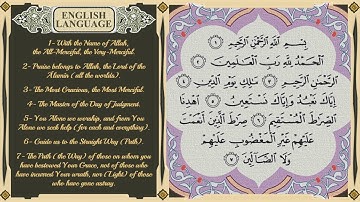 ENGLISH
LANGUAGE
1- With the Name of Allah,
the All-Merciful, the Very-Merciful.
2- Praise belongs to Allah, the Lord of the
Alamin ( all the worlds).
3- The Most Gracious, the Most Merciful.
4- The Master of the Day of Judgment.
5- You Alone we worship, and from You
Alone we seek help ( for each and everything).
6- Guide us to the Straight Way (Path).
7- The Path ( the Way) of those on whom you
have bestowed Your Grace, not of those who
have incurred Your wrath, nor (Light) of those who
have gone astray.
بِسْمِ اللَّهِ الرَّحْمَٰنِ الرَّحِيمِ ١
الْحَمْدُ لِلَّهِ رَبِّ الْعَالَمِينَ ٢
الرَّحْمَٰنِ الرَّحِيمِ ٣ مَالِكِ يَوْمِ الدِّينِ ٤
إِيَّاكَ نَعْبُدُ وَإِيَّاكَ نَسْتَعِينُ ٥ اهْدِنَا
الصِّرَاطَ الْمُسْتَقِيمَ ٦ صِرَاطَ الَّذِينَ أَنْعَمْتَ
عَلَيْهِمْ غَيْرِ الْمَغْضُوبِ عَلَيْهِمْ
وَلَا الضَّالِّينَ ٧